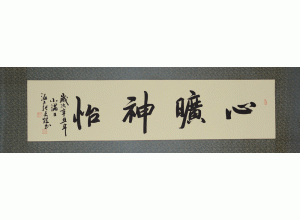 心曠神怡
歲次辛丑年
小滿日